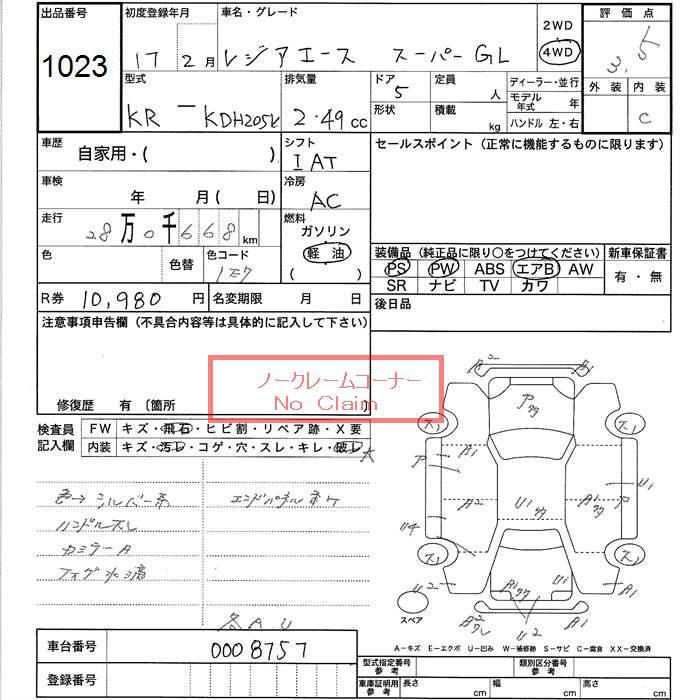 出品番号 初度登録年月 車名・グレード 2WD 評価点
1023 17年2月 レジアエース スーパーGL 4WD 3.5
型式 排気量 ドア 定員 ディーラー・並行 外装 内装
KR-KDH205V 2.49cc 5 人 モデル年式 年 C
形状 積載 kg ハンドル 左・右
車歴 自家用・( ) シフト IAT セールスポイント (正常に機能するものに限ります)
車検 年 月 ( 日) 冷房 AC
走行 28万0千668km 燃料 ガソリン
軽油
( )
色 色替 色コード 1E7
装備品 (純正品に限り○をつけてください) 新車保証書
PS PW ABS エアB AW 有・無
SR ナビ TV カワ
R券 10,980円 名変期限 月 日 後日品
注意事項申告欄 (不具合内容等は具体的に記入して下さい)
ノークレームコーナー
No Claim
修復歴 有 〔箇所
検査員記入欄 FW キズ・飛石・ヒビ割・リペア跡・X要
内装 キズ・汚レ・コゲ・穴・スレ・キレ・破レ 大
色→シルバー系 エンドパネルサケ
ハンドルスレ
カミラーA
各AU
A2 A1
アワ
スリ スリ
ア A1 U1
A2 U1ワ A1ワ ア
U4
スリ スリ
U2 A1ワワ U1 A1
U2
スペア
A-キズ E-エクボ U-凹み W-補修跡 S-サビ C-腐食 XX-交換済
車台番号 0008757
登録番号
型式指定番号 参考 類別区分番号 参考
車庫証明用 参考 長さ cm 幅 cm 高さ cm